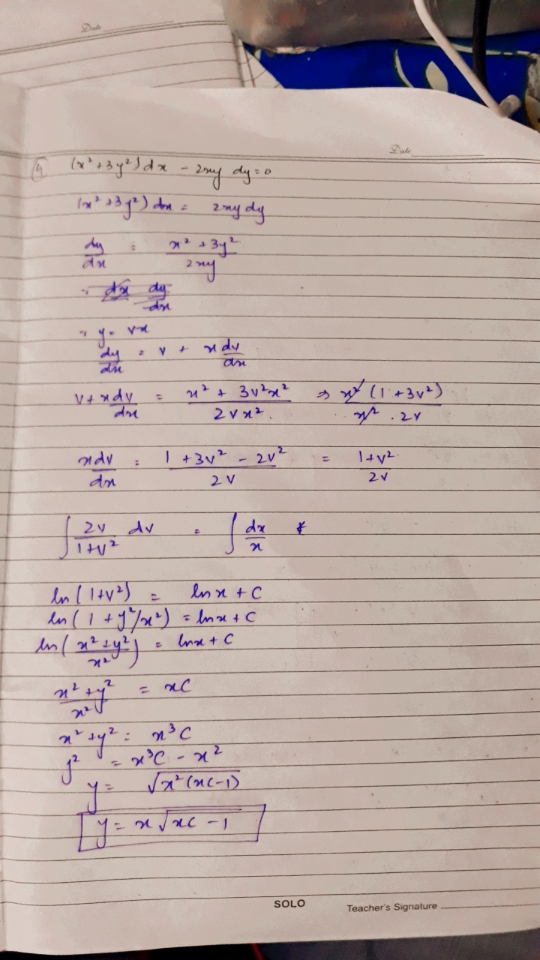 Date
Date
4) (x² + 3y²) dx - 2xy dy = 0
(x² + 3y²) dx = 2xy dy
dy/dx = (x² + 3y²)/2xy
= dx dy/dx
= y = vx
dy/dx = v + x dv/dx
v + x dv/dx = (x² + 3v²x²)/2vx² ⇒ x² (1 + 3v²)/x² . 2v
x dv/dx = (1 + 3v² - 2v²)/2v = (1 + v²)/2v
∫ 2v/(1+v²) dv = ∫ dx/x
ln(1+v²) = ln x + C
ln(1 + y²/x²) = ln x + C
ln((x² + y²)/x²) = ln x + C
(x² + y²)/x² = xC
x² + y² = x³C
y² = x³C - x²
y = √(x²(xC-1))
y = x √(xC - 1)
SOLO Teacher's Signature